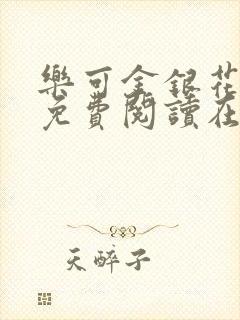 樂可金銀花
免費閱讀在
天醉子